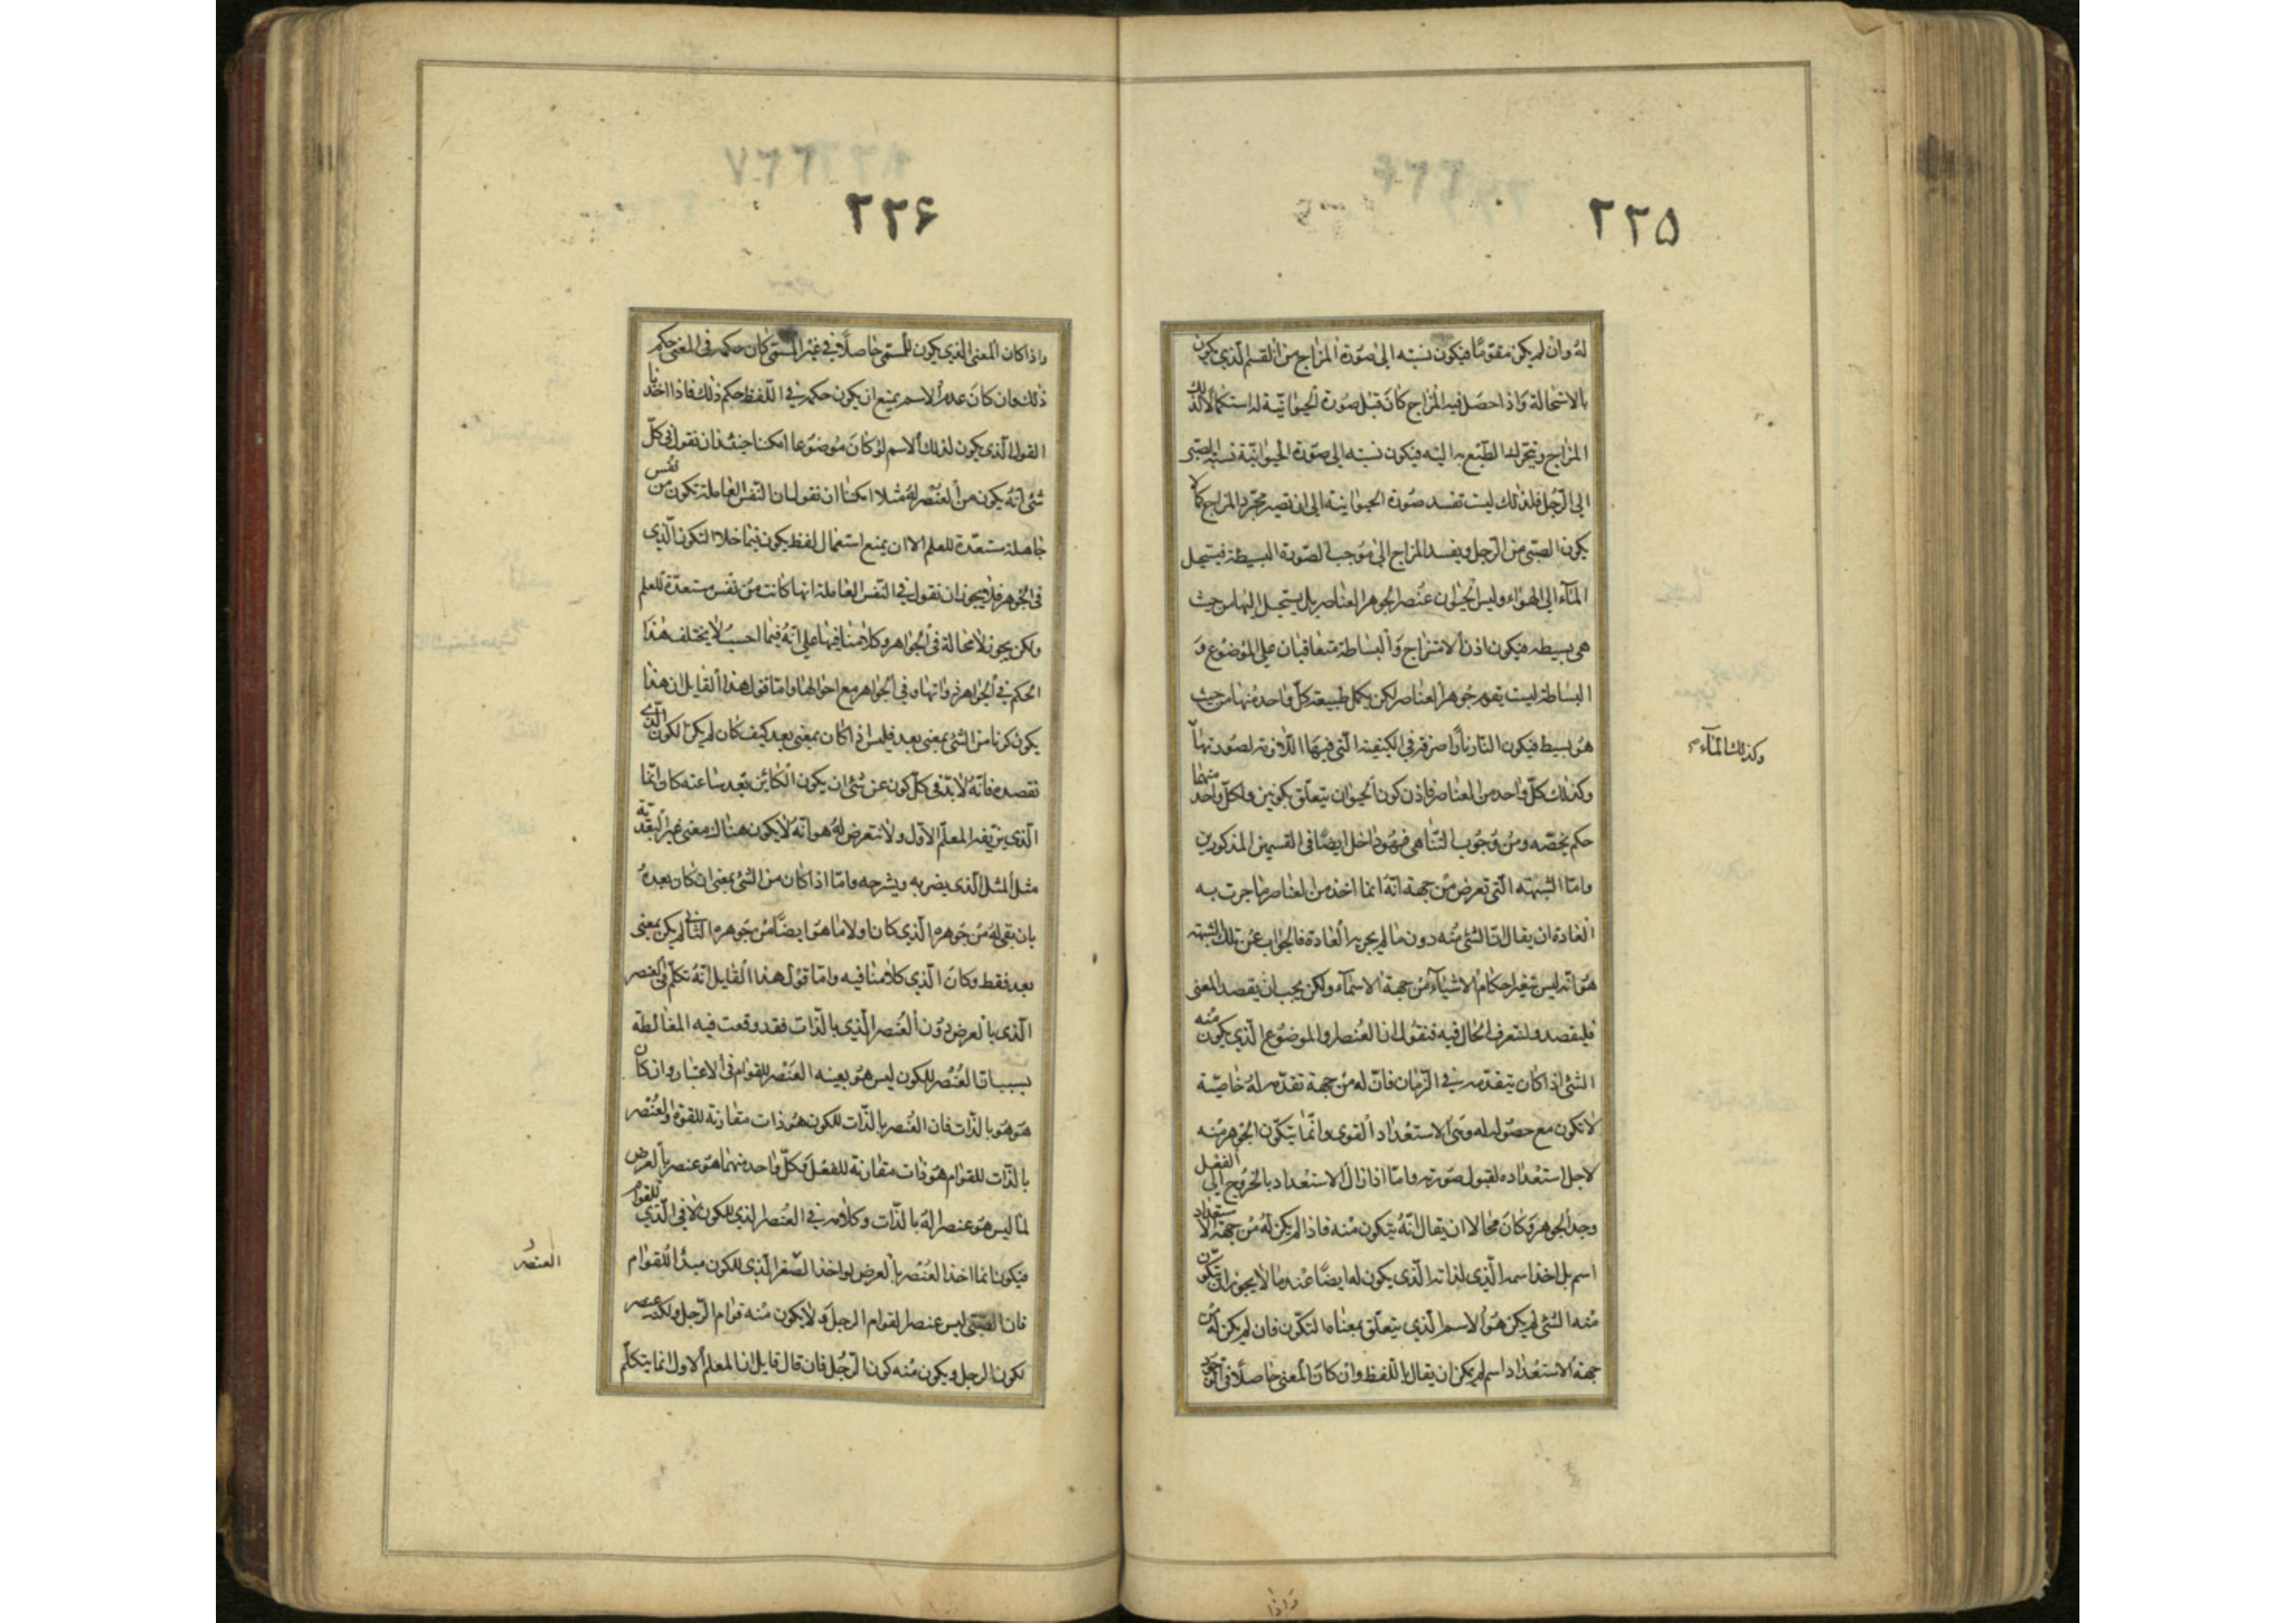 ٢٢٥
له وان لم يكن مقوما فيكون نسبته الى صورة المزاج من القسم الذي يكون
بالاستحالة واذا حصل فيه المزاج كان قبل صورة الحيوانية له استكمالا لذلك
المزاج ويتحرك الطبع به اليه فيكون نسبته الى صورة الحيوانية نسبة الصبى
الى الرجل فلذلك ليست تفسد صورة الحيوانية الى ان تصير مجرد المزاج كما
يكون الصبى من الرجل ويفسد المزاج الى موجب الصورة البسيطة فيستحيل
الماء الى الهواء وليس الحيوان عنصر الجوهر العناصر بل يستحيل اليها من حيث
هى بسيطه فيكون اذن الامتزاج والبساطة متعاقبان على الموضوع و
البساطة ليست يقوم جوهر العناصر لكن يكمل طبيعة كل واحد منها من حيث
هو بسيط فيكون النار نارا صرفة في الكيفية التى فيها اللازمة لصورتها
وكذلك الماء
وكذلك كل واحد من العناصر فاذن كون الحيوان يتعلق بكونين ولكل واحد منهما
حكم يخصه ومن وجوب التناهى فهو داخل ايضا فى القسمين المذكورين
واما الشبهته التى تعرض من جهة انه انما اخذ من العناصر ما جرت به
العادة ان يقال ان الشئ منه دون ما لم يجر به العادة فالجواب عن تلك الشبهة
هو انه ليس تتغير احكام الاشياء من جهة الاسماء ولكن يجب ان يقصد المعنى
فليقصد ولتعرف الحال فيه فنقول ان العنصر والموضوع الذي يكون منه
الشئ اذا كان يتقدمه في الزمان فان له من جهة تقدمه له خاصية
لا تكون مع حصوله له وهى الاستعداد القوى وانما يتكون الجوهر منه
لاجل استعداده لقبول صورته واما اذا زال الاستعداد بالخروج الى الفعل
وجد الجوهر وكان محالا ان يقال انه يتكون منه فاذا لم يكن له من جهة الاستعداد
اسم بل اخذ اسمه الذي لذاته الذي يكون له ايضا عند ما لا يجوز ان يتكون
منه الشئ لم يكن هو الاسم الذي يتعلق بمعناه التكون فان لم يكن له من
جهة الاستعداد اسم لم يمكن ان يقال باللفظ وان كان المعنى حاصلا فى الوجود
واذا
٢٢۶
واذا كان المعنى الذي يكون للمسمى حاصلا في غير المسمى كان حكمه فى المعنى حكم
ذلك وان كان عدم الاسم يمنع ان يكون حكمه في اللفظ حكم ذلك فاذا اخذنا
القول الذي يكون لذلك الاسم لو كان موضوعا امكننا حينئذ ان نقول في كل
شئ انه يكون من العنصر له مثلا امكننا ان نقول ان النفس العاملة تكون من نفس
جاهلة مستعدة للعلم الا ان يمنع استعمال لفظ يكون فيما خلا التكون الذي
فى الجوهر فلا يجوز ان نقول في النفس العاملة انها كانت من نفس مستعدة للعلم
ولكن يجوز لا محالة فى الجواهر وكلامنا فيها على انه فيما احسب لا يختلف هذا
الحكم في الجواهر ذواتها وفي الجواهر مع احوالها واما قول هذا القايل ان هذا
يكون كونا من الشئ بمعنى بعد فليس اذا كان بمعنى بعد كيف كان لم يكن لكون الذي
نقصده فانه لابد فى كل كون عن شئ ان يكون الكائن بعد ما عنه كان وانما
الذي يزيفه المعلم الاول ولا نتعرض له هو انه لا يكون هناك معنى غير البعدية
مثل المثل الذى يضربه ويشرحه واما اذا كان من الشئ بمعنى ان كان بعده
بان بقى له من جوهره الذي كان اولا ما هو ايضا من جوهره الثانى لم يكن بمعنى
بعد فقط وكان الذي كلامنا فيه واما قول هذا القايل انه تكلم فى العنصر
الذى بالعرض دون العنصر الذي بالذات فقد وقعت فيه المغالطة
بسبب ان العنصر للكون ليس هو بعينه العنصر للقوام فى الاعتبار وان كان
هو هو بالذات فان العنصر بالذات للكون هو ذات مقارنة للقوة والعنصر
بالذات للقوام هو ذات مقارنة للفعل وكل واحد منهما هو عنصر بالعرض
لما ليس هو عنصرا له بالذات وكلامه في العنصر الذى للكون لا في الذي للقوام
فيكون انما اخذ العنصر بالعرض لو اخذ الذى للكون مبدأ للقوام
العنصر
فان الصبى ليس عنصرا لقوام الرجل ولا يكون منه قوام الرجل ولكنه عنصر
لكون الرجل ويكون منه كون الرجل فان قال قايل ان المعلم الاول انما يتكلم